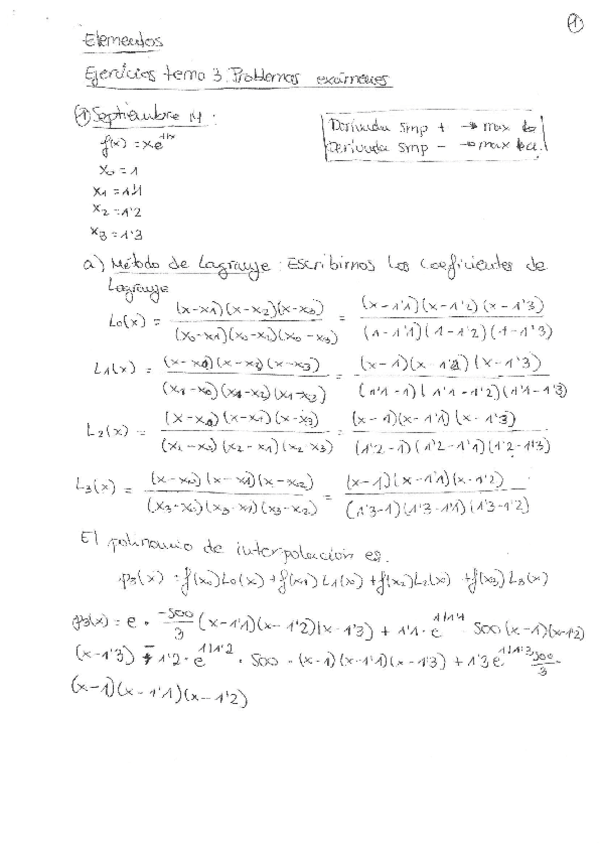 1
Elementos
Ejercicios tema 3. Problemas exámenes
① Septiembre 14.
f(x) = x e^{1/x}
x₀ = 1
x₁ = 1'1
x₂ = 1'2
x₃ = 1'3
Derivada smp + → max b
Derivada smp - → max a
a) Método de Lagranje: Escribimos los coeficientes de
Lagranje
L₀(x) = (x-x₁)(x-x₂)(x-x₃) / (x₀-x₁)(x₀-x₂)(x₀-x₃) = (x-1'1)(x-1'2)(x-1'3) / (1-1'1)(1-1'2)(1-1'3)
L₁(x) = (x-x₀)(x-x₂)(x-x₃) / (x₁-x₀)(x₁-x₂)(x₁-x₃) = (x-1)(x-1'2)(x-1'3) / (1'1-1)(1'1-1'2)(1'1-1'3)
L₂(x) = (x-x₀)(x-x₁)(x-x₃) / (x₂-x₀)(x₂-x₁)(x₂-x₃) = (x-1)(x-1'1)(x-1'3) / (1'2-1)(1'2-1'1)(1'2-1'3)
L₃(x) = (x-x₀)(x-x₁)(x-x₂) / (x₃-x₀)(x₃-x₁)(x₃-x₂) = (x-1)(x-1'1)(x-1'2) / (1'3-1)(1'3-1'1)(1'3-1'2)
El polinomio de interpolación es.
p₃(x) = f(x₀)L₀(x) + f(x₁)L₁(x) + f(x₂)L₂(x) + f(x₃)L₃(x)
p₃(x) = e · -500/3 (x-1'1)(x-1'2)(x-1'3) + 1'1 · e^{1/1'1} 500(x-1)(x-1'2)
(x-1'3) - 1'2 · e^{1/1'2} · 500 · (x-1)(x-1'1)(x-1'3) + 1'3 e^{1/1'3} 500/3
(x-1)(x-1'1)(x-1'2)